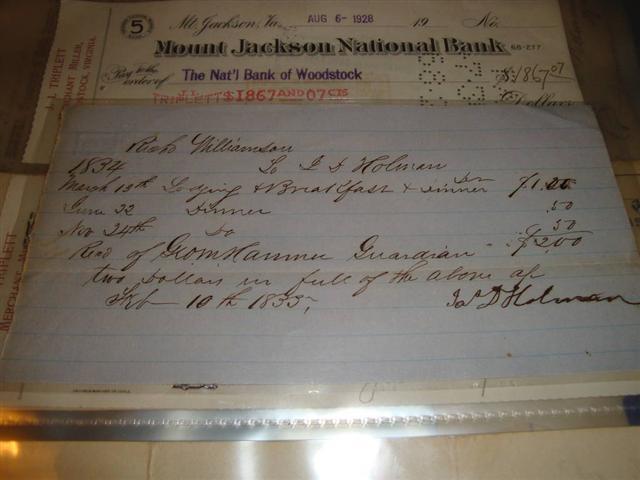 Mt. Jackson, Va. AUG 6- 1928 19 No.
5
Mount Jackson National Bank 68-277
Pay to the order of The Nat'l Bank of Woodstock $1867.07
TRIPLETT $1867 AND 07 CTS Dollars
J. I. TRIPLETT
MERCHANT MILLER,
Richd Williamson
1834 To J D Holman
March 13th Lodging & Breakfast & Dinner $1.00
June 22 Dinner .50
Nov 24th Do 50
$2.00
Recd of Geo W Hammer Guardian
two Dollars in full of the above
Feb 10th 1835
Jas D Holman
TRIPLETT
MERCHANT